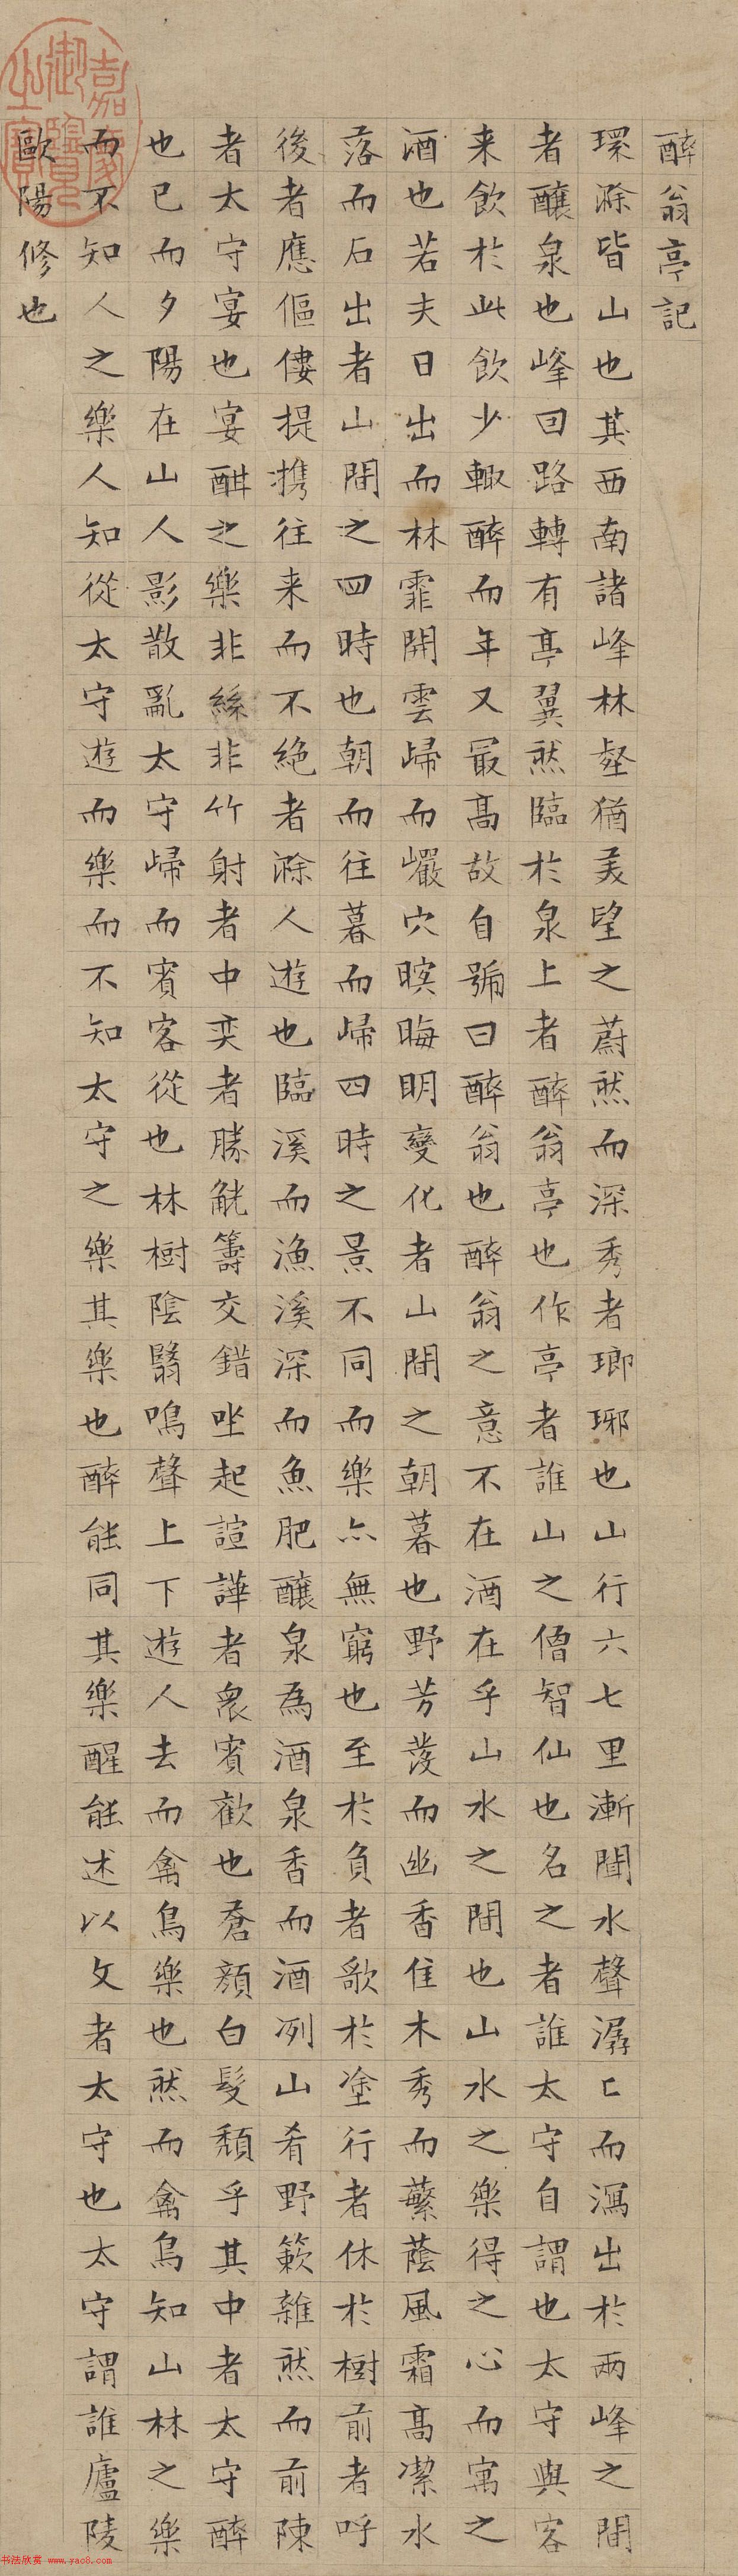 醉翁亭記
環滁皆山也其西南諸峰林壑猶美望之蔚然而深秀者瑯琊也山行六七里漸聞水聲潺〻而瀉出於兩峰之間
者釀泉也峰回路轉有亭翼然臨於泉上者醉翁亭也作亭者誰山之僧智仙也名之者誰太守自謂也太守與客
来飲於此飲少輒醉而年又最高故自號曰醉翁也醉翁之意不在酒在乎山水之間也山水之樂得之心而寓之
酒也若夫日出而林霏開雲歸而巖穴暝晦明變化者山間之朝暮也野芳發而幽香佳木秀而蘩蔭風霜高潔水
落而石出者山間之四時也朝而往暮而歸四時之景不同而樂亦無窮也至於負者歌於塗行者休於樹前者呼
後者應傴僂提攜往来而不絶者滁人遊也臨溪而漁溪深而魚肥釀泉為酒泉香而酒冽山肴野蔌雜然而前陳
者太守宴也宴酣之樂非絲非竹射者中奕者勝觥籌交錯坐起諠譁者衆賓歡也蒼顏白髮頹乎其中者太守醉
也已而夕陽在山人影散亂太守歸而賓客從也林樹陰翳鳴聲上下遊人去而禽鳥樂也然而禽鳥知山林之樂
而不知人之樂人知從太守遊而樂而不知太守之樂其樂也醉能同其樂醒能述以文者太守也太守謂誰廬陵
歐陽修也
嘉慶御覽之寶
书法欣赏 www.yac8.com